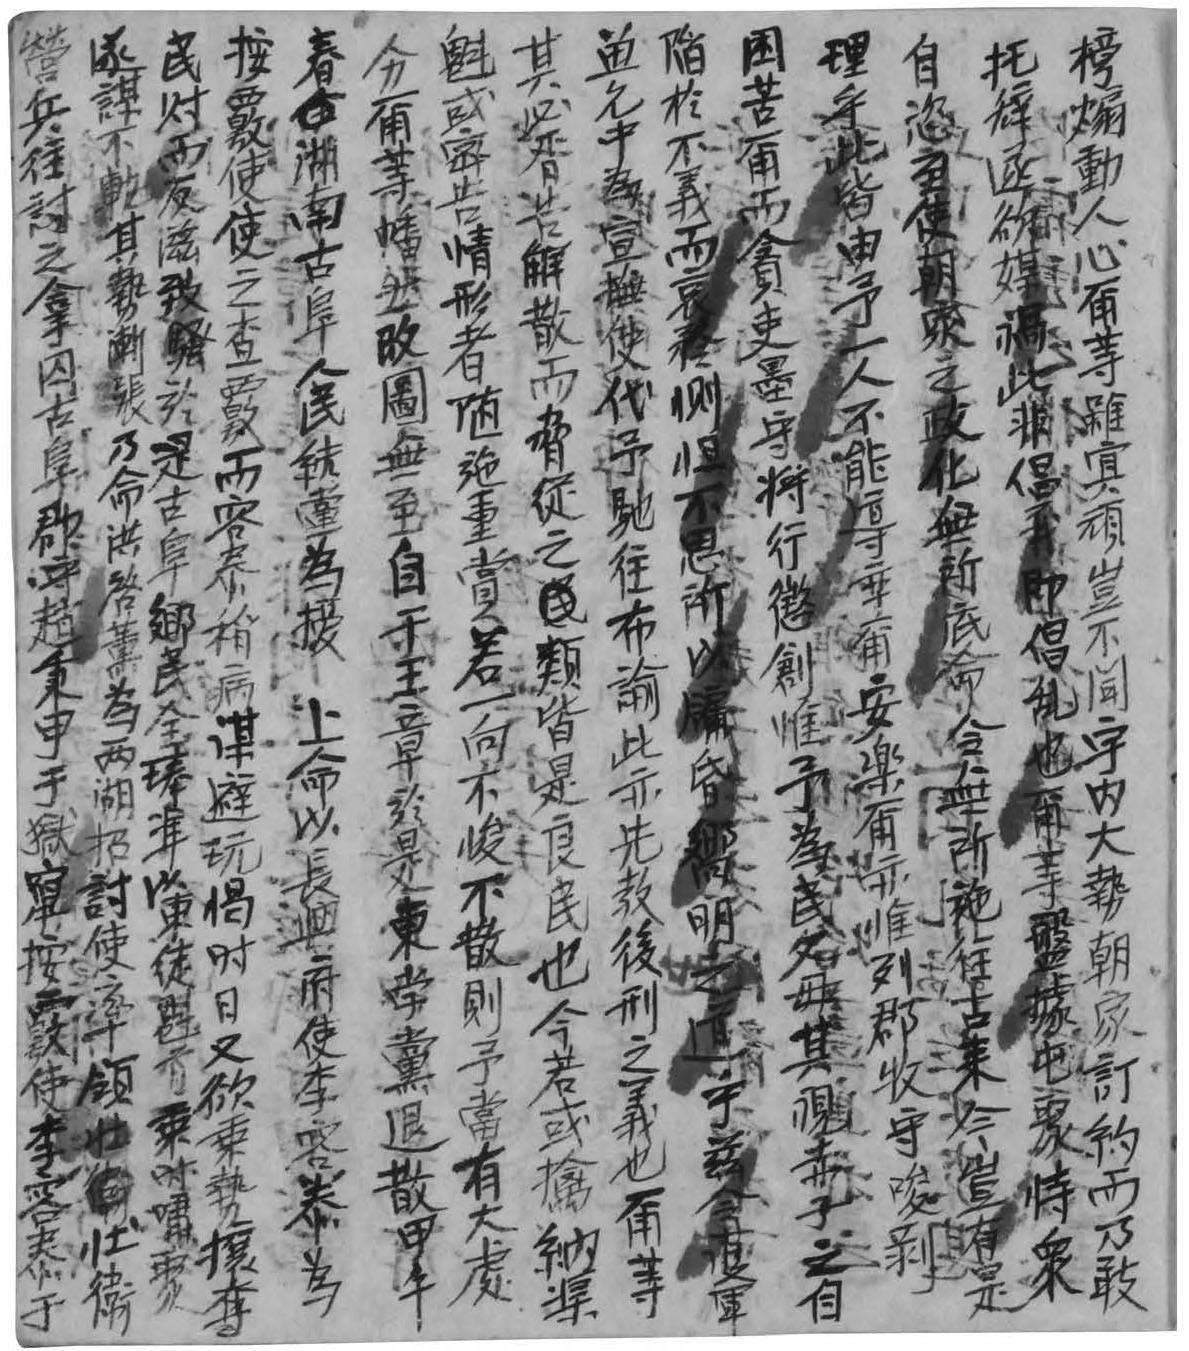 榜煽動人心爾等雖冥頑豈不聞宇內大勢朝家訂約而乃敢
托辭逐欲媒禍此非倡義即倡乱也爾等盤據屯聚恃衆
自恣至使朝家之政化無所底命令無所施往古來今豈有是
理乎此皆由予一人不能導率爾安樂爾亦惟列郡牧守浚剝
困苦爾而貪吏墨守將行懲創惟予為民父毋其視赤子之自
陷於不義而哀矜惻怛不思所以牖昏嚮明之道乎玆令莫軍
並允中為宣撫使代予馳往布諭此亦先敎後刑之義也爾等
其必胥告解散而脅從之民類皆是良民也今若或擒納渠
魁或密告情形者随施重賞若一向不悛不散則予當有大處
分爾等幡然改圖無至自干王章於是東学黨退散甲午
春 湖南古阜人民統亶為援 上命以長興府使李容泰為
按覈使使之查覈而容泰稱病謀避玩愒时日又欲乘勢攘奪
民財而反滋致騷於是古阜鄉民全琫準以東徒魁首乘时嘯聚
遂謀不軌其勢漸張乃命洪啓薰為两湖招討使率領壮衛
營兵往討之拿囚古阜郡守趙秉甲于獄竄按覈使李容泰于